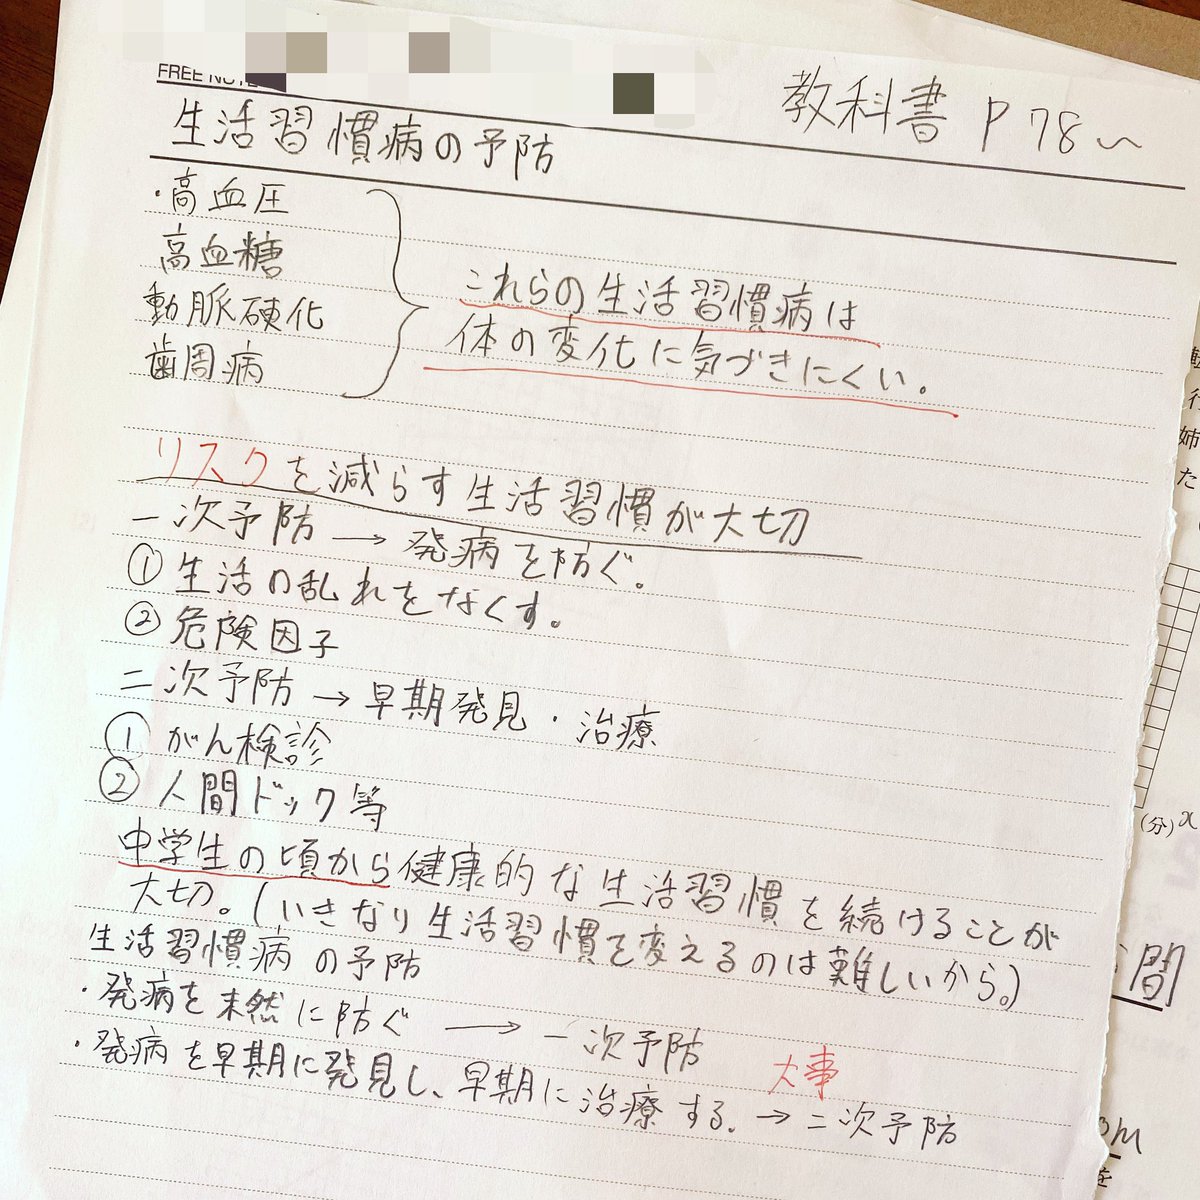 FREE NOTE
教科書 P78〜
生活習慣病の予防
・高血圧
高血糖
動脈硬化
歯周病
これらの生活習慣病は
体の変化に気づきにくい。
リスクを減らす生活習慣が大切
一次予防→発病を防ぐ。
①生活の乱れをなくす。
②危険因子
二次予防→早期発見・治療
①がん検診
②人間ドック等
中学生の頃から健康的な生活習慣を続けることが
大切。(いきなり生活習慣を変えるのは難しいから。)
生活習慣病の予防
・発病を未然に防ぐ→一次予防
大事
・発病を早期に発見し、早期に治療する。→二次予防
転
行
姉
た
(分)
x
間
を